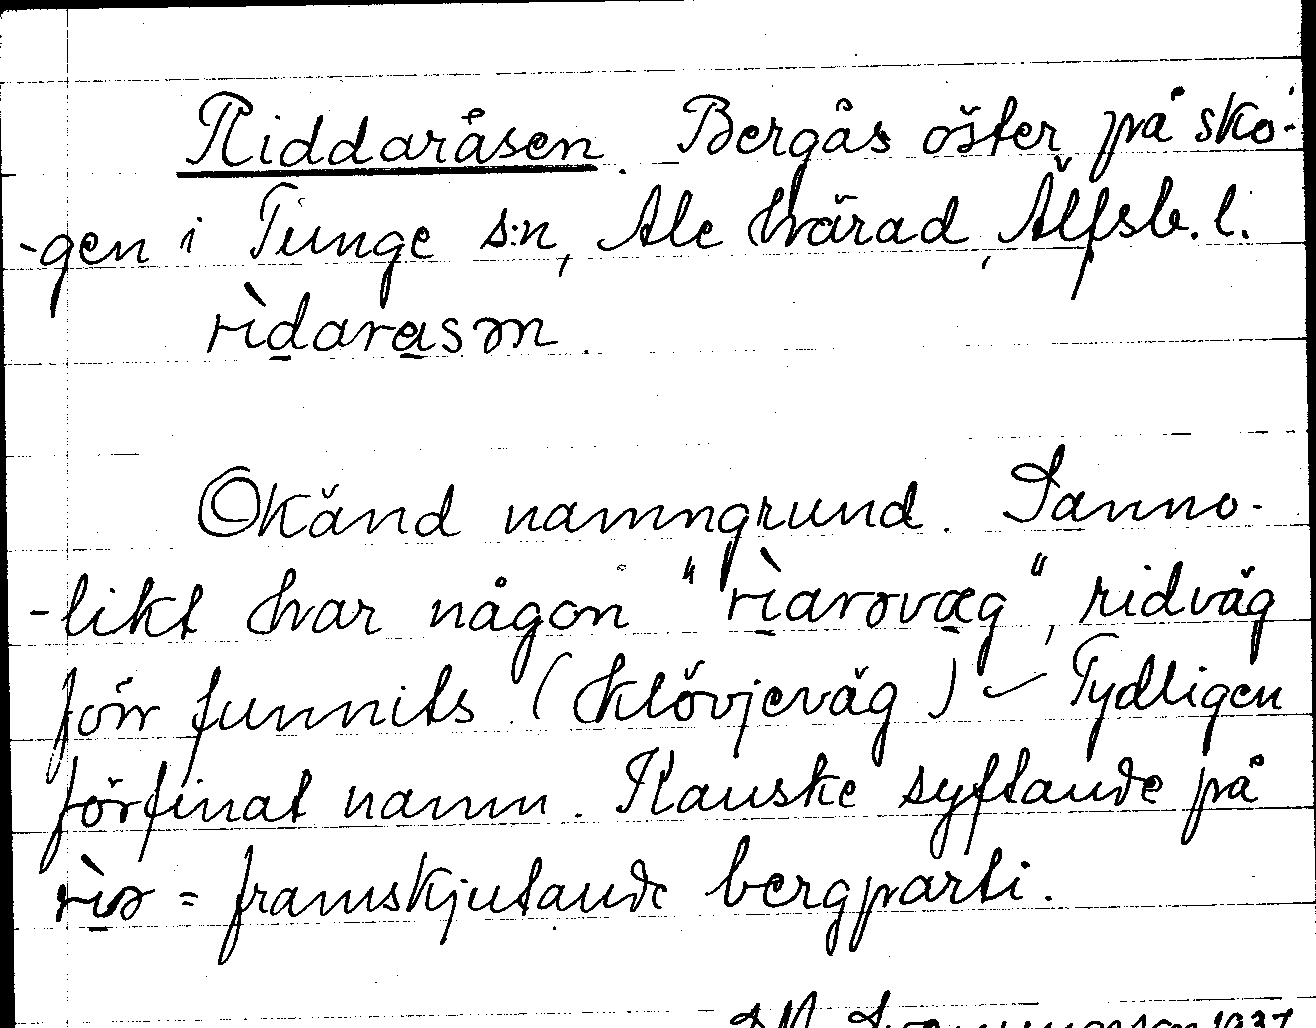 Riddaråsen. Bergås öster på sko-
-gen i Tunge s:n, Ale härad, Älfsb. l.
rìdarasən.
Okänd namngrund. Sanno-
-likt har någon "rìarəvæg", ridväg
förr funnits (klövjeväg) – Tydligen
förfinat namn. Kanske syftande på
rìə = framskjutande bergparti.
1937